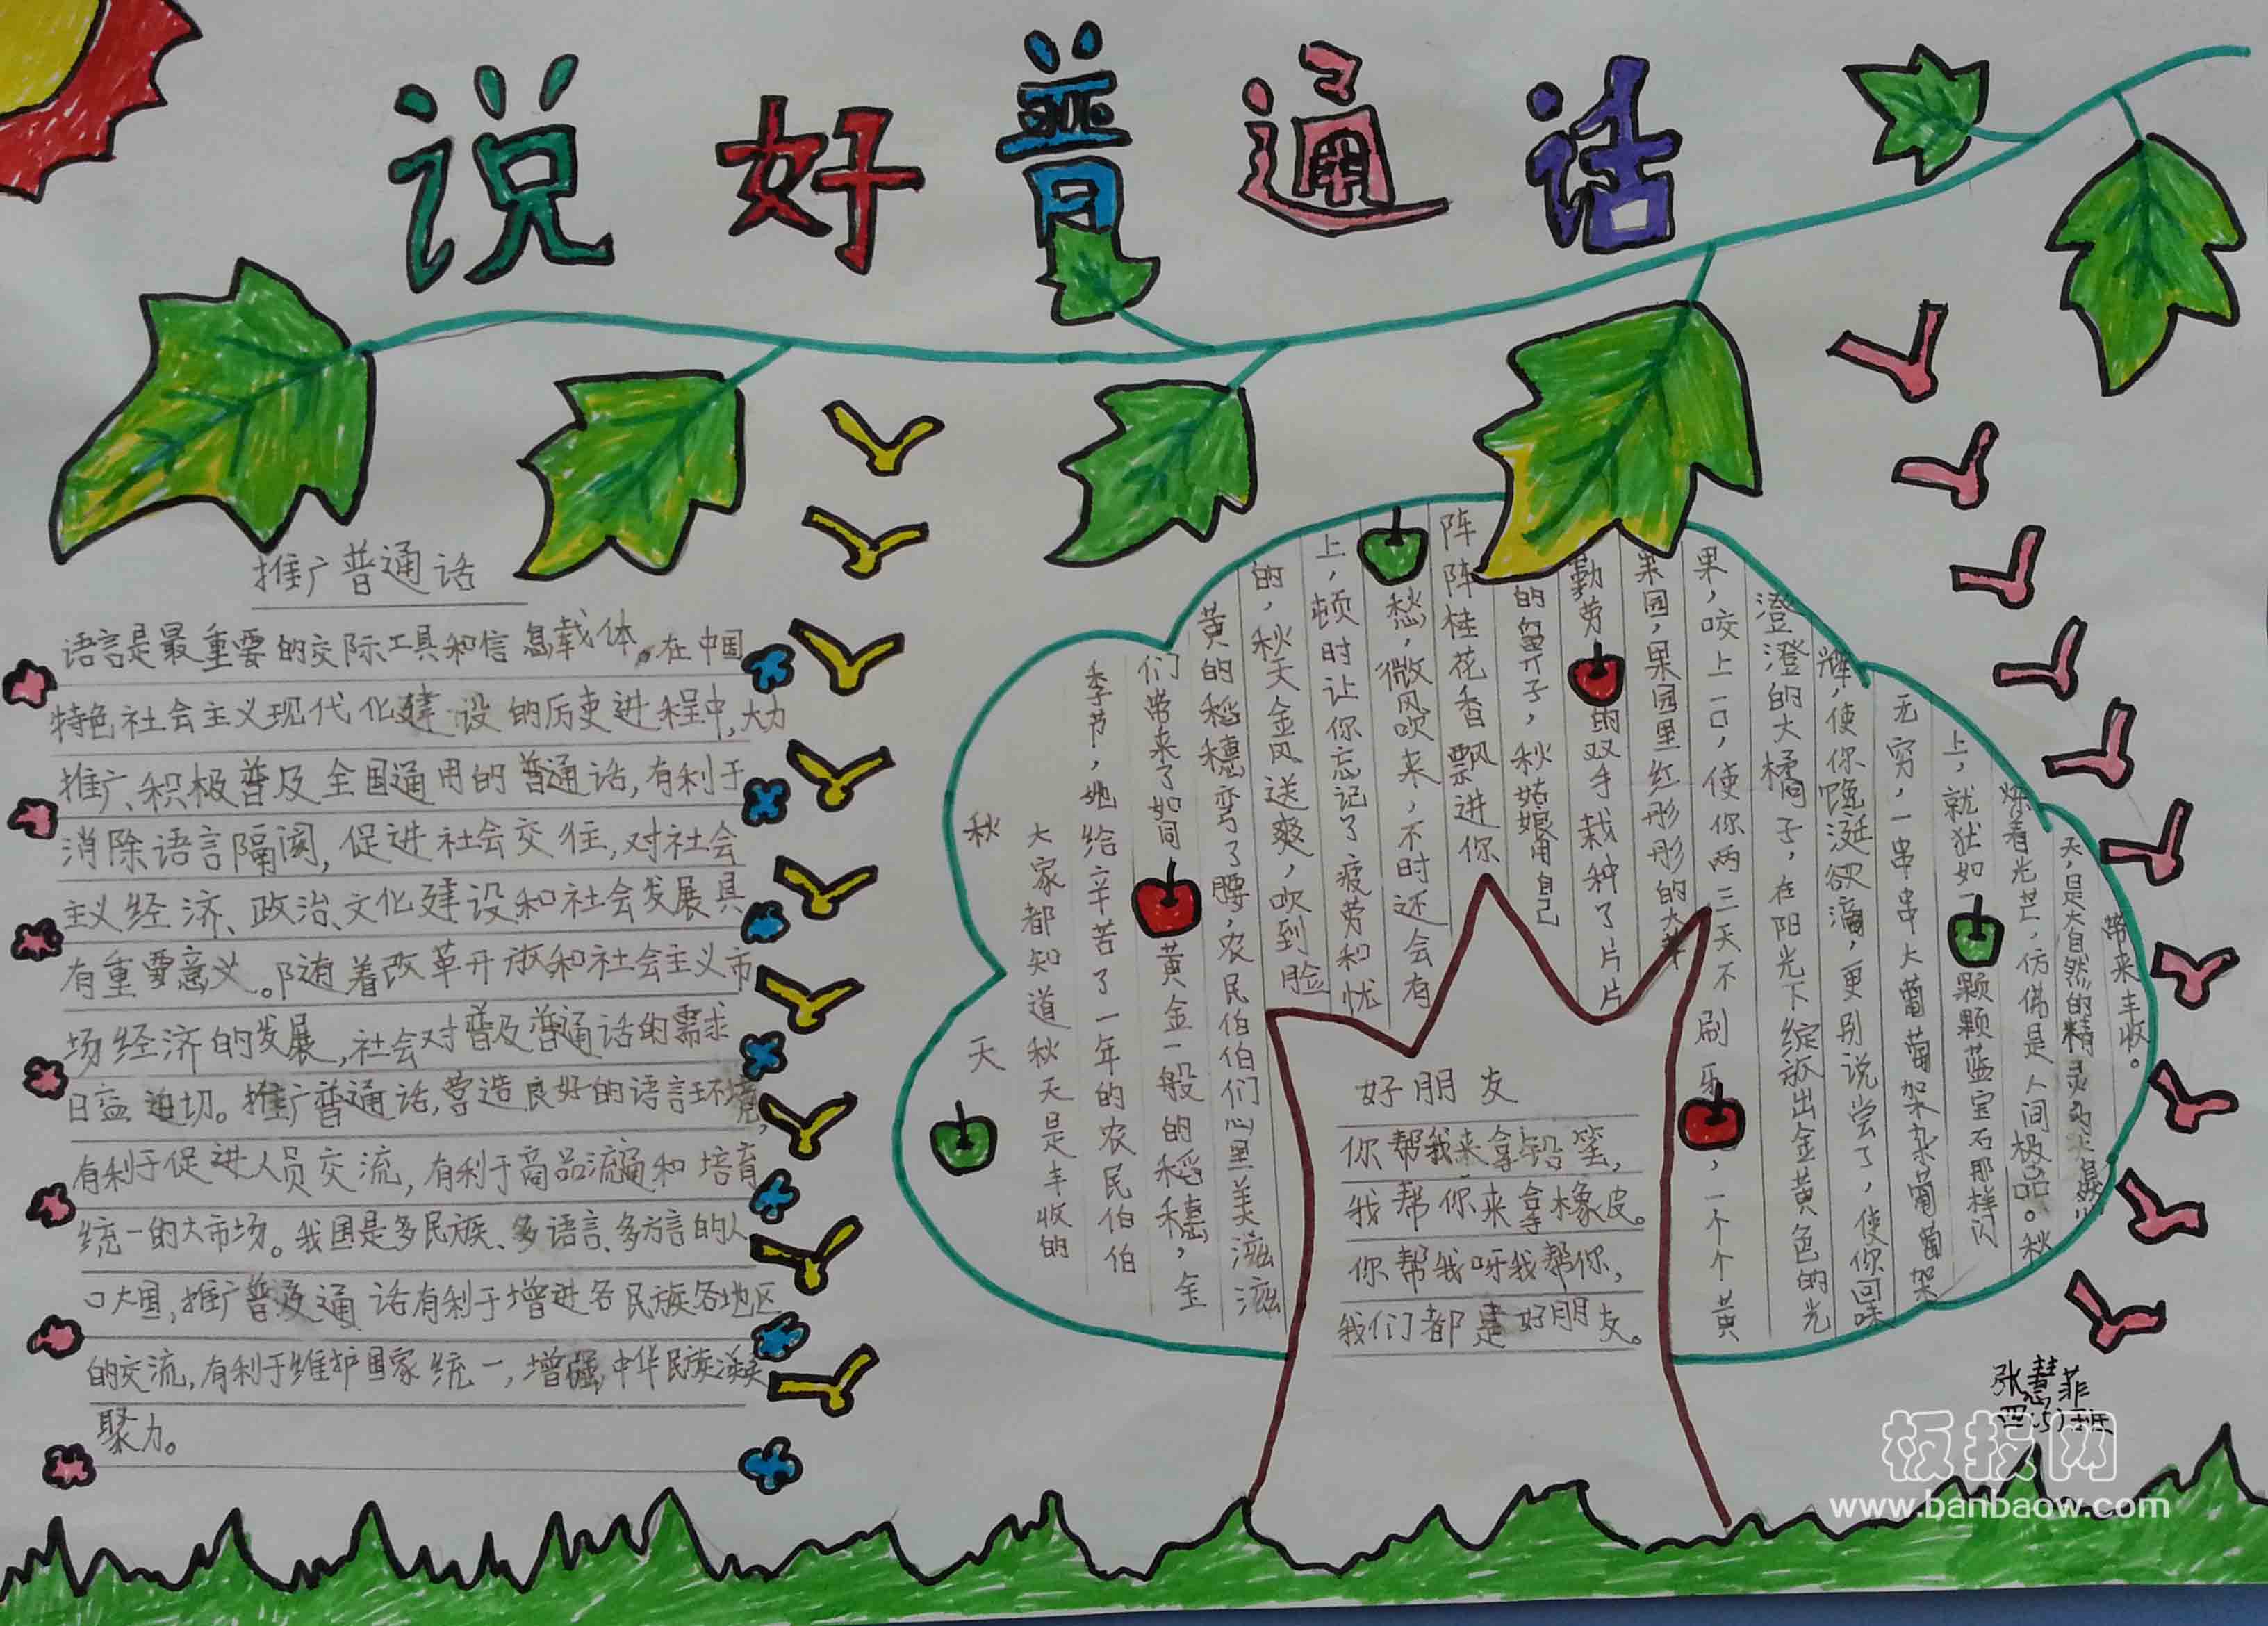 说好普通话
推广普通话
语言是最重要的交际工具和信息载体。在中国
特色社会主义现代化建设的历史进程中,大力
推广、积极普及全国通用的普通话,有利于
消除语言隔阂,促进社会交往,对社会
主义经济、政治、文化建设和社会发展具
有重要意义。随着改革开放和社会主义市
场经济的发展,社会对普及普通话的需求
日益迫切。推广普通话,营造良好的语言环境,
有利于促进人员交流,有利于商品流通和培育
统一的大市场。我国是多民族、多语言、多方言的人
口大国,推广普及通话有利于增进各民族各地区
的交流,有利于维护国家统一,增强中华民族凝
聚力。
秋天
大家都知道秋天是丰收的
季节,她给辛苦了一年的农民伯伯
们带来了如同黄金一般的稻穗,金
黄的稻穗弯了腰,农民伯伯们心里美滋滋
的,秋天金风送爽,吹到脸
上,顿时让你忘记了疲劳和忧
愁,微风吹来,不时还会有
阵阵桂花香飘进你
的鼻子,秋姑娘用自己
勤劳的双手栽种了片片
果园,果园里红彤彤的大苹
果,咬上一口,使你两三天不刷牙,一个个黄
澄澄的大橘子,在阳光下绽放出金黄色的光
辉,使你馋涎欲滴,更别说尝了,使你回味
无穷,一串串大葡萄架杂葡萄架
上,就犹如一颗颗蓝宝石那样闪
烁着光芒,仿佛是人间极品。秋
天,是大自然的精灵
带来丰收。
好朋友
你帮我来拿铅笔,
我帮你来拿橡皮。
你帮我呀我帮你,
我们都是好朋友。
张慧菲
四(5)班
板报网
www.banbaow.com